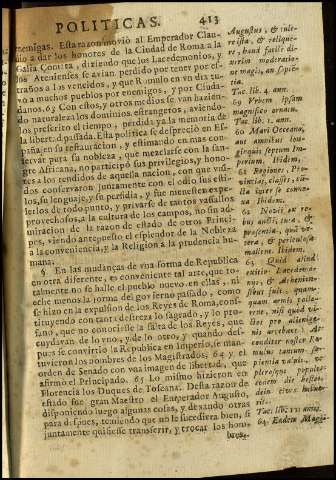 POLITICAS. 413
enemigas. Esta razon movió al Emperador Clau-
dio a dar los honores de la Ciudad de Roma a la
Galia Comata, diziendo, que los Lacedemonios, y
los Atenienses se avian perdido por tener por es-
traños a los vencidos, y que Romulo en vn dia tu-
vo a muchos pueblos por enemigos, y por Ciuda-
danos. 63 Con estos, y otros medios se van hazien-
do naturaleza los dominios estrangeros, aviendo-
los prescrito el tiempo, perdida ya la memoria de
la libertad passada. Esta politica se despreció en Es-
paña en su restauracion, y estimando en mas con-
servar pura su nobleza, que mezclarse con la san-
gre Africana, no participó sus privilegios, y hono-
res a los rendidos de aquella nacion, con que vni-
dos conservaron juntamente con el odio sus esti-
los, su lenguage, y su perfidia, y fue menester expe-
lerlos de todo punto, y privarse de tantos vassallos
provechosos a la cultura de los campos, no sin ad-
miracion de la razon de estado de otros Princi-
pes, viendo antepuesto el esplendor de la Nobleza
a la conveniencia, y la Religion a la prudencia hu-
mana.
§ En las mudanças de vna forma de Republica
en otra diferente, es conveniente tal arte, que to-
talmente no se halle el pueblo nuevo en ellas, ni
eche menos la forma del govierno passado, como
se hizo en la expulsion de los Reyes de Roma, cons-
tituyendo con tanta destreza lo sagrado, y lo pro-
fano, que no conociesse la falta de los Reyes, que
cuydavan de lo vno, y de lo otro, y quando des-
pues se convirtió la Republica en Imperio, se man-
tuvieron los nombres de los Magistrados, 64 y el
orden de Senado con vna imagen de libertad, que
afirmó el Principado. 65 Lo mismo hizieron en
Florencia los Duques de Toscana. Desta razon de
estado fue gran Maestro el Emperador Augusto,
disponiendo luego algunas cosas, y dexando otras
para despues, temiendo que no le sucederia bien, si
juntamente quisiesse transferir, y trocar los hom-
bres,
Augustus, & inte-
reissa, & relique-
re, haud facile di-
urbem moderatio-
ne magis, an sapie-
tia.
Tac. lib. 4. ann.
59 Vrbem ipsam
magnifico ornatu.
Tac. lib. 1. ann.
60 Mari Oceano,
aut amnibus lon-
ginquis septum Im-
perium. Ibidem.
61 Regiones, Pro-
vincias, classes, cun-
cta inter se conne-
xa. Ibidem.
62
63 Quid aliud
exitio Lacedemo-
nijs, & Athenien-
sibus fuit, quam-
quam armis polle-
rent, nisi quod vic-
tos pro alienige-
nis arcebant? At
conditor noster Ro-
mulus tantum sa-
pientia valuit, vt
plerosque populos
eodem die hostes,
dein cives habue-
rit.
Tac. lib. 11. annal.
64 Eadem Magis-